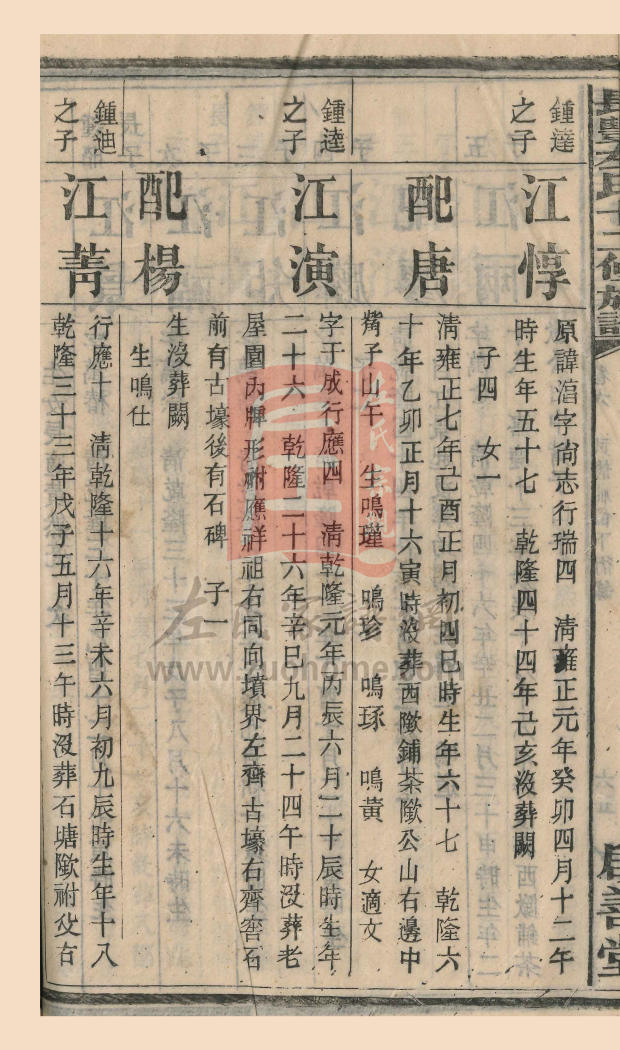 鍾達
之子
江惇
原諱滔字尙志行瑞四 淸雍正元年癸卯四月十二午
時生年五十七 乾隆四十四年己亥沒葬闕
子四 女一
配唐
淸雍正七年己酉正月初四巳時生年六十七 乾隆六
十年乙卯正月十六寅時沒葬西歐鋪茶歐公山右邊中
觜子山午 生鳴瑾 鳴珍 鳴琢 鳴黃 女適文
鍾逵
之子
江演
字于成行應四 淸乾隆元年丙辰六月二十辰時生年
二十六 乾隆二十六年辛巳九月二十四午時沒葬老
屋園內牌形祔應祥祖右同向墳界左齊古壕右齊窖石
前有古壕後有石碑 子一
配楊
生沒葬闕
生鳴仕
鍾迪
之子
江菁
行應十 淸乾隆十六年辛未六月初九辰時生年十八
乾隆三十三年戊子五月十三午時沒葬石塘歐祔父右
十二修族譜
善堂
左氏家譜網
www.zuohome.com